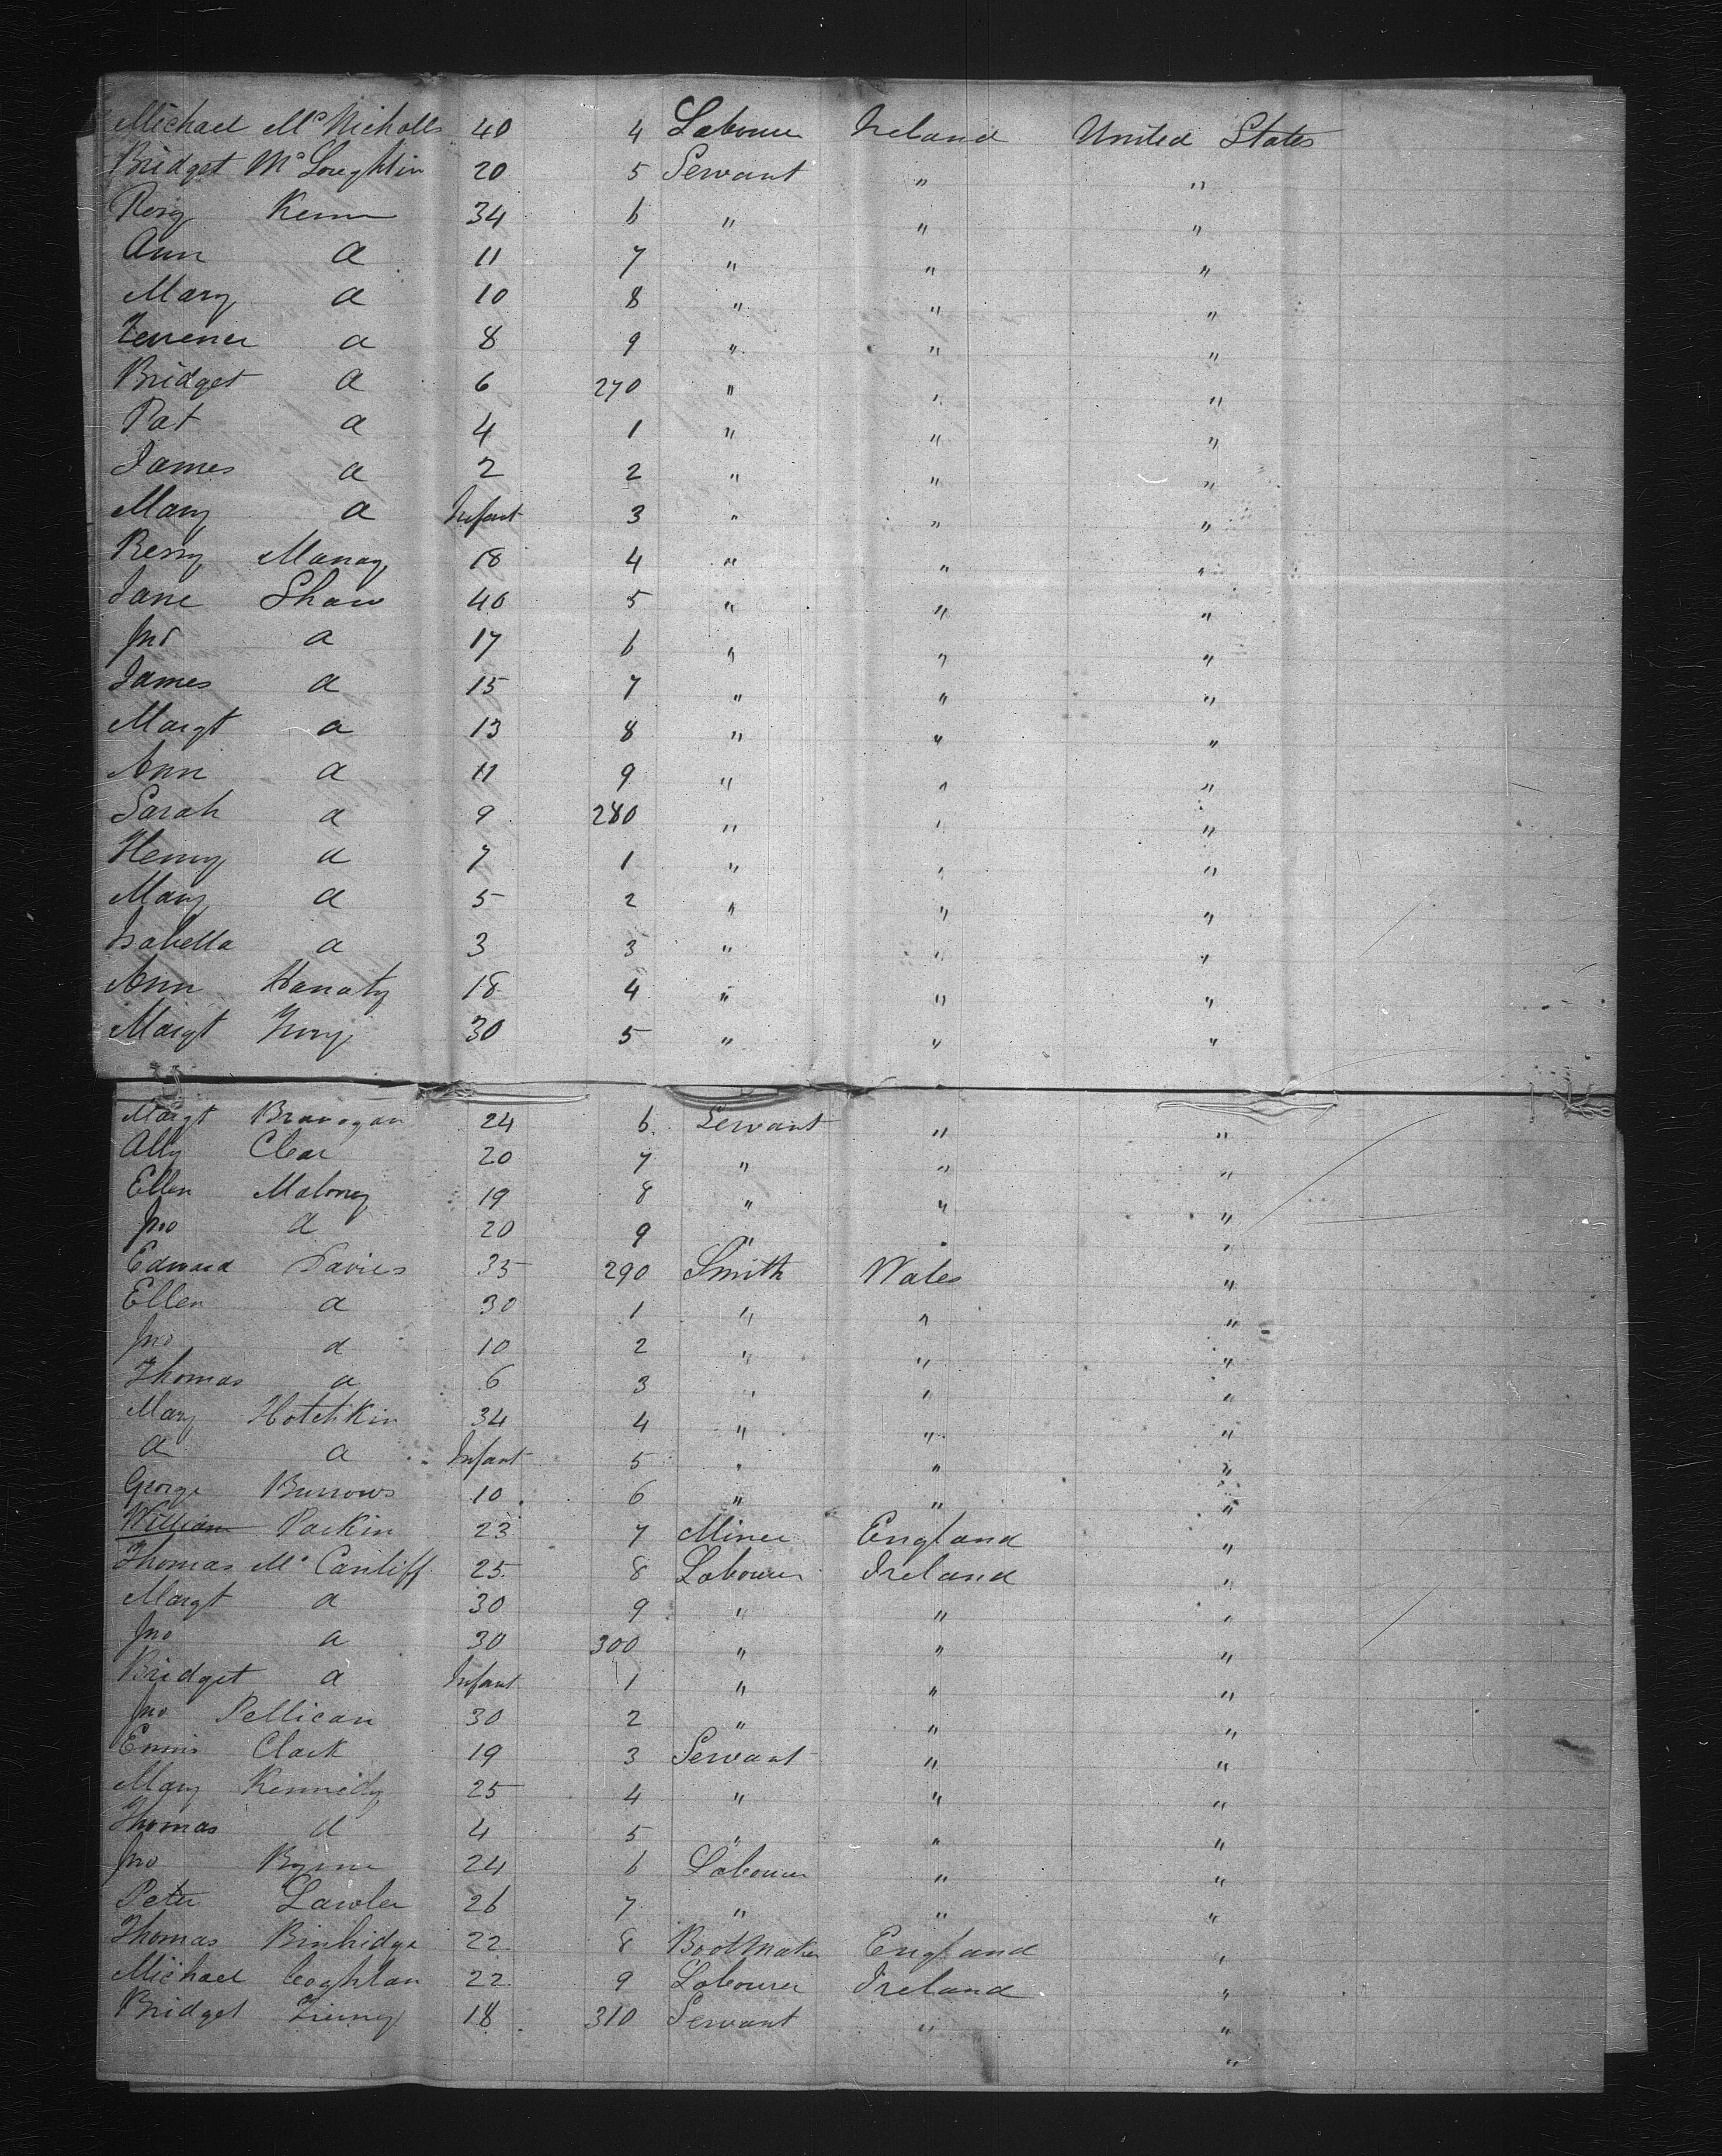 Michael McNicholls 40 4 Labourer Ireland United States
Bridget McLoughlin 20 5 Servant " "
Rosy 34 6 " " "
Ann a 11 7 " " "
Mary a 10 8 " " "
Terrence a 8 9 " " "
Bridget a 6 270 " " "
Pat a 4 1 " " "
James a 2 2 " " "
Mary a Infant 3 " " "
18 4 " " "
Jane Shaw 40 5 " " "
Jno a 17 6 " " "
James a 15 7 " " "
Margt a 13 8 " " "
Ann a 11 9 " " "
Sarah a 9 280 " " "
Henry a 7 1 " " "
Mary a 5 2 " " "
Isabella a 3 3 " " "
Ann Hanaty 18 4 " " "
Margt 30 5 " " "
Margt Branogan 24 6 Servant " "
Ally Clear 20 7 " " "
Ellen Maloney 19 8 " " "
Jno a 20 9 " " "
Edward Davies 35 290 Smith Wales "
Ellen a 30 1 " " "
Jno a 10 2 " " "
Thomas a 6 3 " " "
Mary Hotchkin 34 4 " " "
a a Infant 5 " " "
George Burrows 10 6 " " "
William Parkin 23 7 Miner England "
Thomas McCanliff 25 8 Labourer Ireland "
Margt a 30 9 " " "
Jno a 30 300 " " "
Bridget a Infant 1 " " "
Jno Pellican 30 2 " " "
Clark 19 3 Servant " "
Mary Kennedy 25 4 " " "
Thomas a 4 5 " " "
Jno Byrne 24 6 Labourer " "
Peter Lawler 26 7 " " "
Thomas Binhidge 22 8 Bootmaker England "
Michael Coghlan 22 9 Labourer Ireland "
Bridget 18 310 Servant " "
"